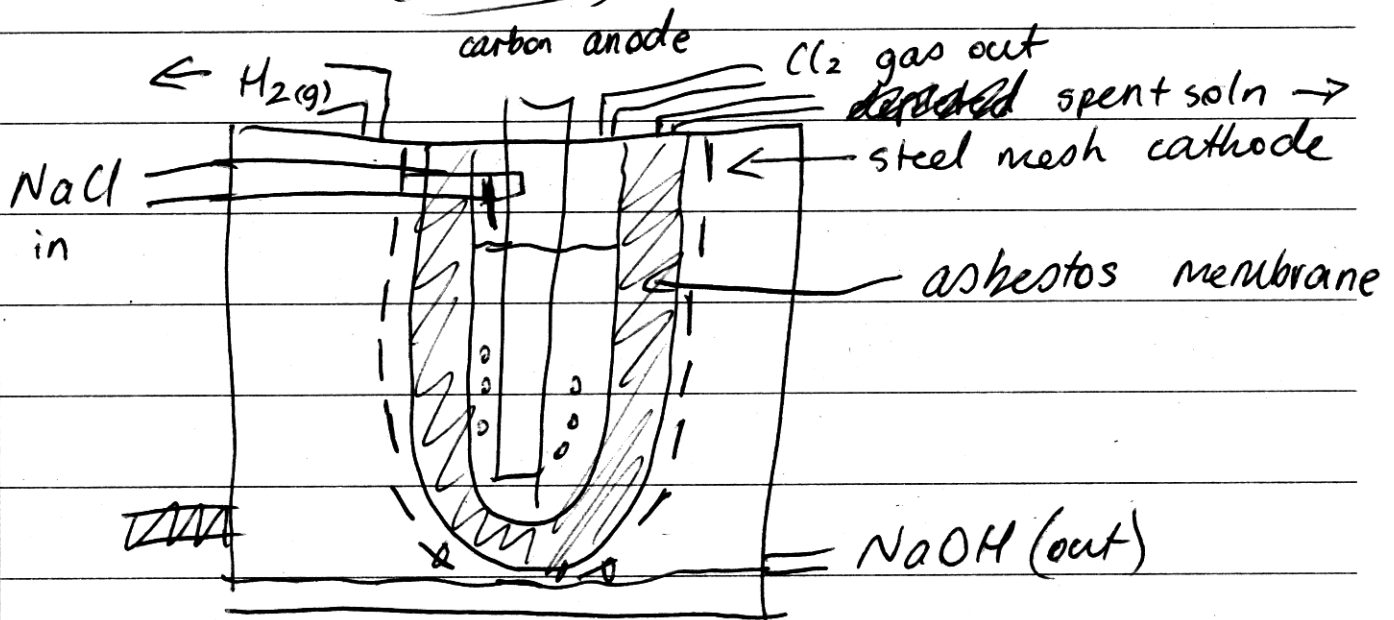 carbon anode
← H₂(g)
Cl₂ gas out
spent soln →
steel mesh cathode
NaCl
in
asbestos membrane
NaOH (out)